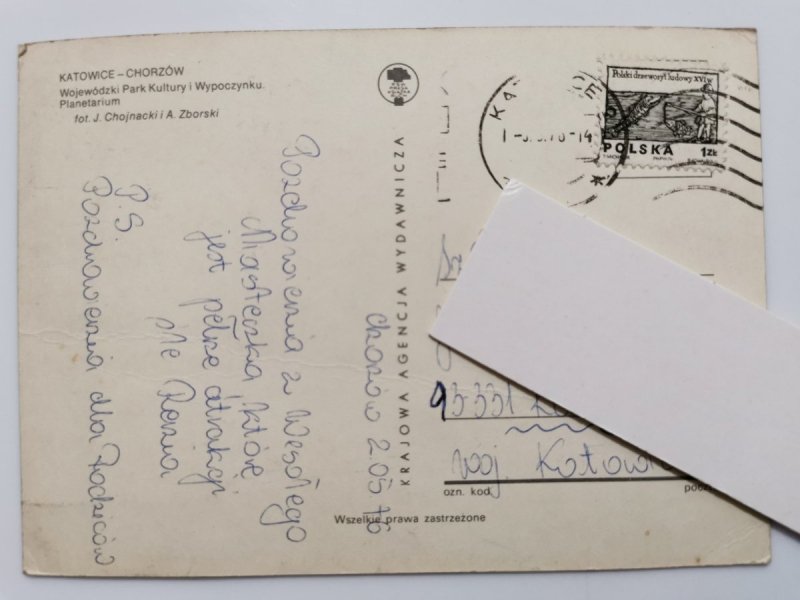 KATOWICE – CHORZÓW
Wojewódzki Park Kultury i Wypoczynku.
Planetarium
fot. J. Chojnacki i A. Zborski
KRAJOWA AGENCJA WYDAWNICZA
Polski drzeworyt ludowy XVI w.
POLSKA 1 ZŁ
Chorzów 2.05 76
Pozdrowienia z Wesołego
Miasteczka, które
jest pełne atrakcji
śle
P.S.
Pozdrowienia dla Rodziców
woj.
ozn. kod
Wszelkie prawa zastrzeżone